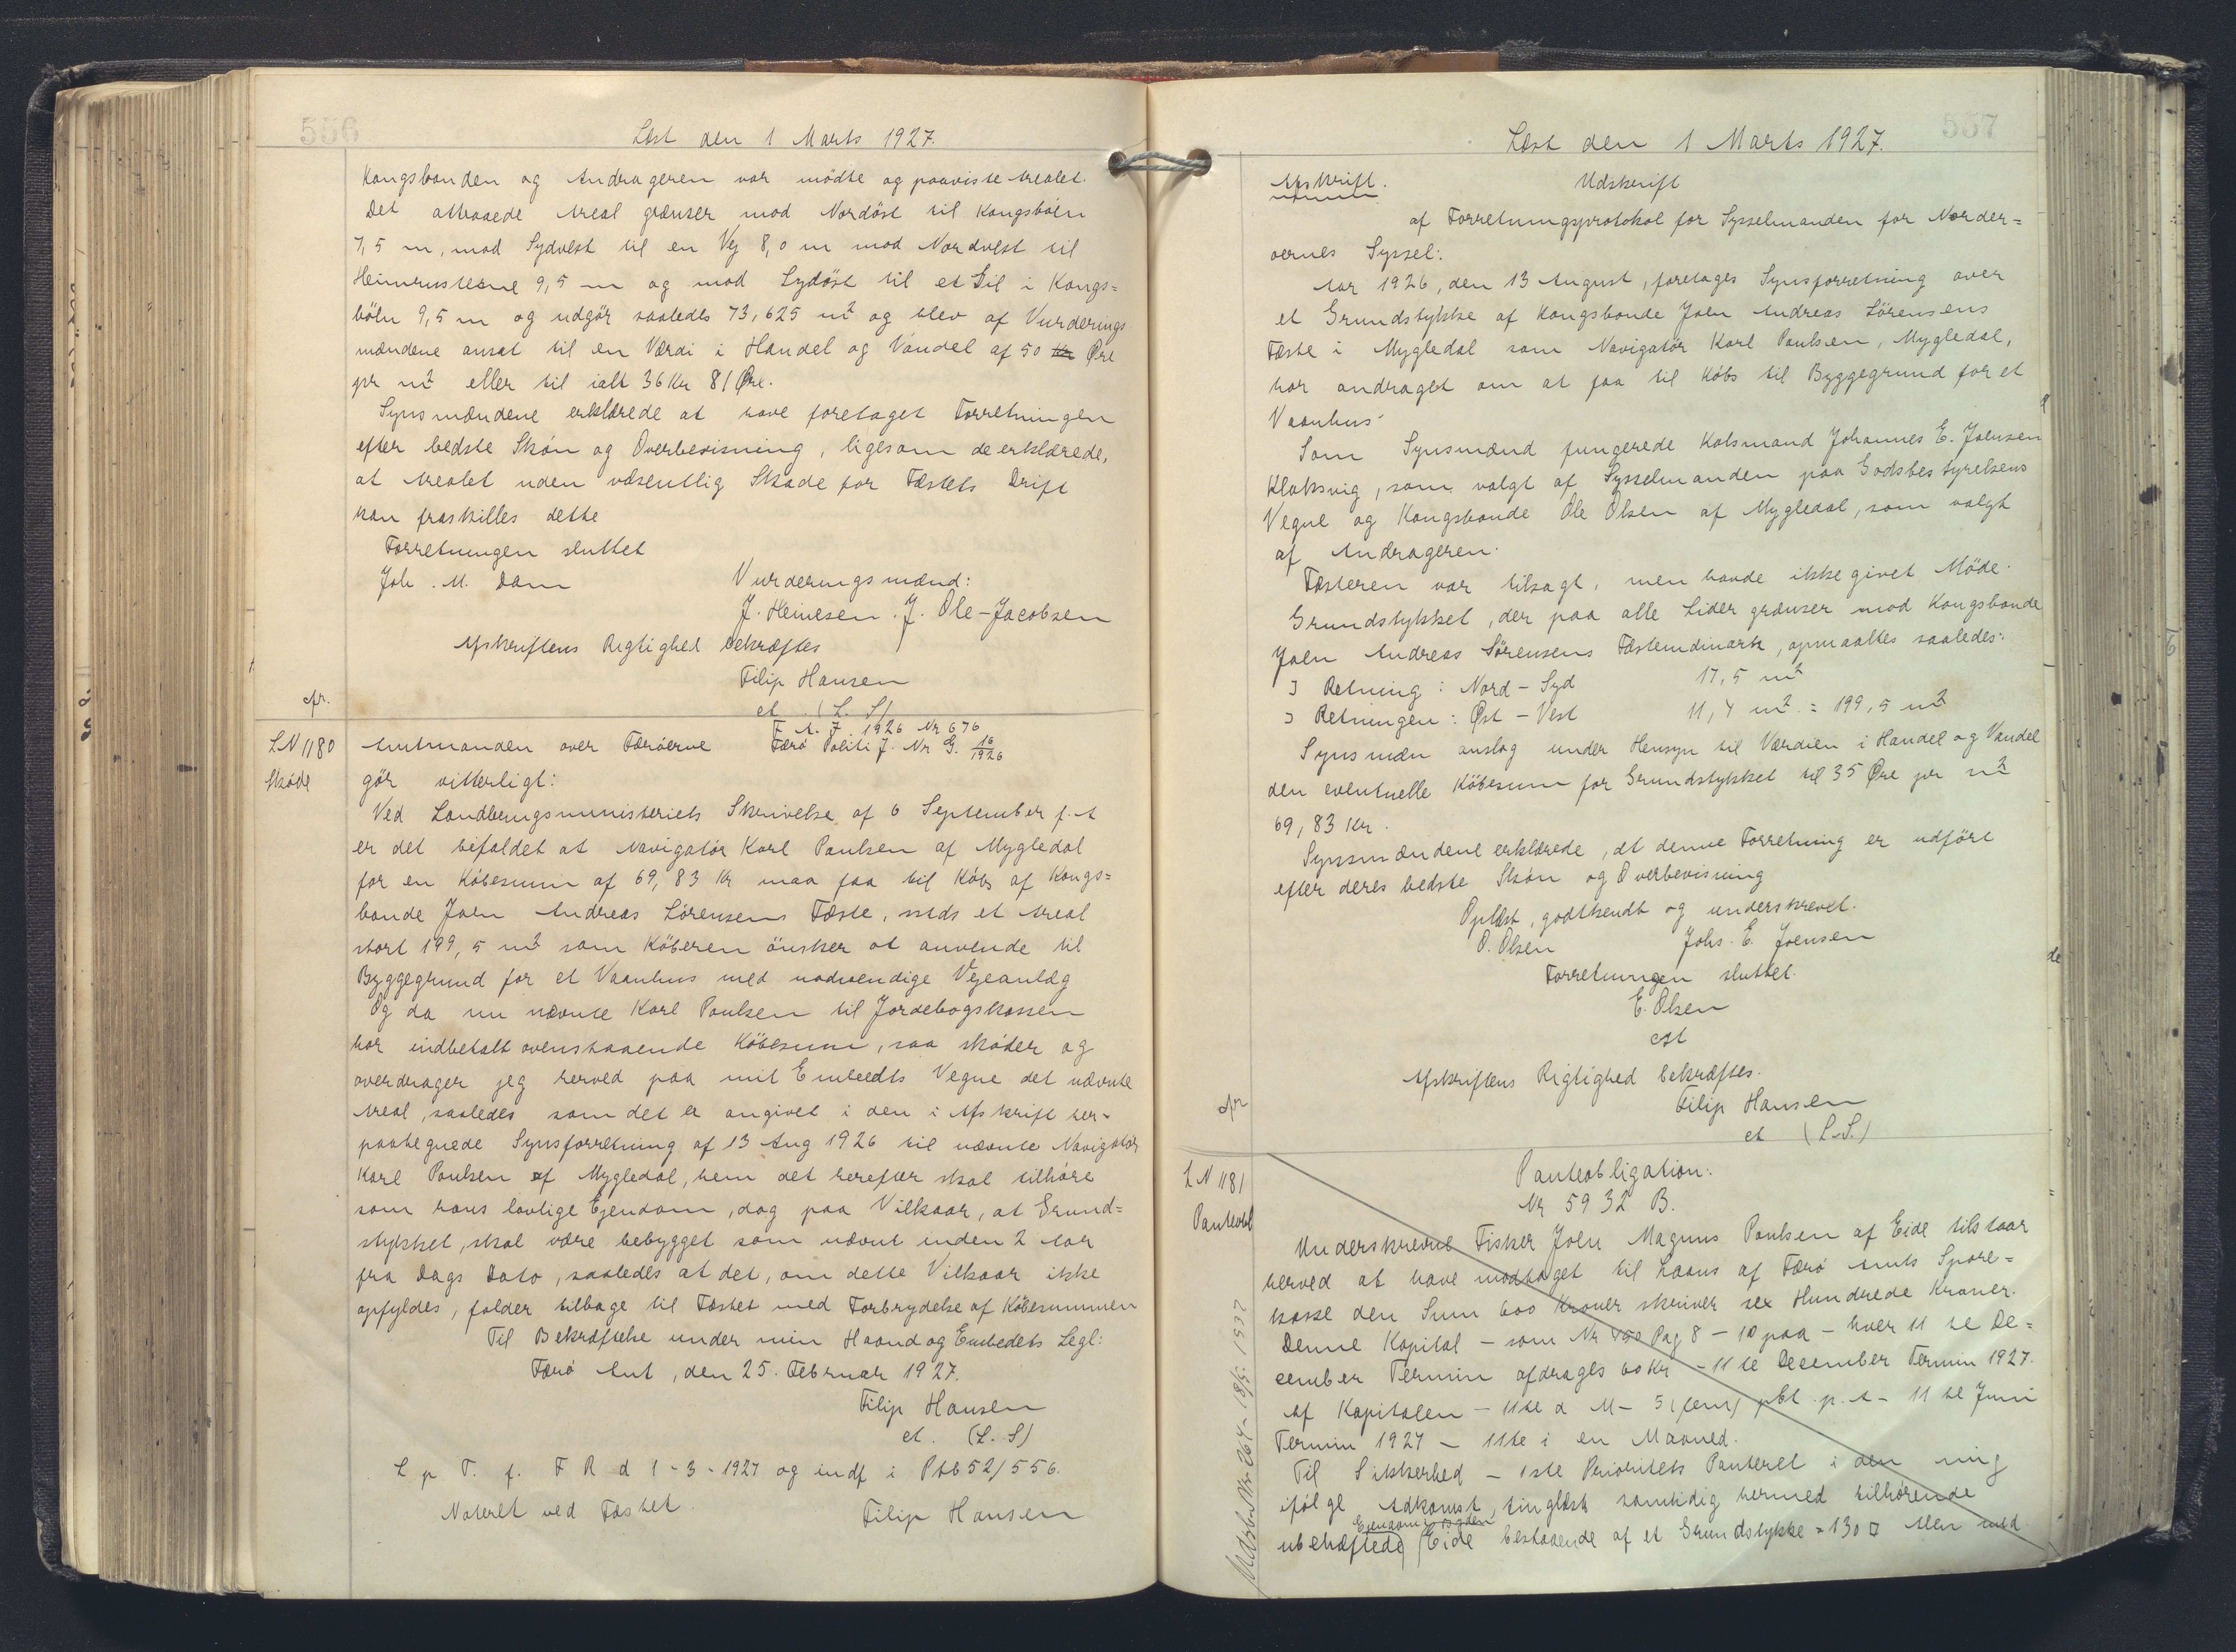 556
Læst den 1 Marts 1927.
Kongsbonden og Andrageren var mödte og paaviste Arealet.
Det attraaede Areal grænser mod Nordöst til Kongsböen
7,5 m, mod Sydvest til en Vej 8,0 m mod Nordvest til
Heimrusterne 9,5 m og mod Sydöst til et Gil i Kongs=
böen 9,5 m og udgör saaledes 73,625 m² og blev af Vurderings
mændene ansat til en Værdi i Handel og Vandel af 50 Kr Øre
pr m² eller til ialt 36 Kr 81 Øre.
Synsmændene erklærede at have foretaget Forretningen
efter bedste Skön og Overbevisning, ligesom de erklærede,
at Arealet uden væsentlig Skade for Fæstets Drift
kan fraskilles dette
Forretningen sluttet
Joh. M. Dam Vurderingsmænd:
J. Heinesen. J. Ole-Jacobsen
Afskriftens Rigtighed bekræftes
Filip Hansen
cfr. et. (L. S)
F. A. J. 1926 Nr 676
LN 1180 Amtmanden over Færöerne Færö Politi J. Nr G. 16/1926
Sköde gör vitterligt:
Ved Landbrugsministeriets Skrivelse af 6 September f. A
er det bifaldet at Navigatör Karl Paulsen af Mygledal
for en Köbesum af 69,83 Kr maa faa til Köbs af Kongs=
bonde Joen Andreas Sörensens Fæste, sstds et Areal
stort 199,5 m² som Köberen önsker at anvende til
Byggegrund for et Vaanhus med nodvendige Vejeanlæg
Og da nu nævnte Karl Paulsen til Jordebogskassen
har indbetalt ovenstaaende Köbesum, saa sköder og
overdrager jeg herved paa mit Embedts Vegne det nævnte
Areal, saaledes som det er angivet i den i Afskrift her-
paategnede Synsforretning af 13 Aug 1926 til nævnte Navigatör
Karl Paulsen af Mygledal, hem det herefter skal tilhöre
som hans lovlige Ejendom, dog paa Vilkaar, at Grund=
stykket, skal være bebygget som nævnt inden 2 Aar
fra Dags Dato, saaledes at det, om dette Vilkaar ikke
opfyldes, falder tilbage til Fæstet med Forbrydelse af Köbesummen
Til Bekræftelse under min Haand og Embedets Segl:
Færö Amt, den 25. Februar 1927.
Filip Hansen
et. (L. S)
L p T. f. F R d 1-3-1927 og indf i Ptb 52/556.
Noteret ved Fæstet. Filip Hansen
557
Læst den 1 Marts 1927.
Afskrift. Udskrift
af Forretningsprotokol for Sysselmanden for Norder=
oernes Syssel:
Aar 1926, den 13 August, foretages Synsforretning over
et Grundstykke af Kongsbonde Joen Andreas Sörensens
Fæste i Mygledal som Navigatör Karl Paulsen, Mygledal,
har andraget om at faa til Köbs til Byggegrund for et
Vaanhus.
Som Synsmænd fungerede Kobsmand Johannes E. Joensen
Klaksvig, som valgt af Sysselmanden paa Godsbestyrelsens
Vegne og Kongsbonde Ole Olsen af Mygledal, som valgt
af Andrageren.
Fæsteren var tilsagt, men havde ikke givet Möde.
Grundstykket, der paa alle Sider grænser mod Kongsbonde
Joen Andreas Sörensens Fæsteindmark, opmaaltes saaledes:
I Retning: Nord - Syd 17,5 m²
I Retningen: Øst - Vest 11,4 m² = 199,5 m²
Synsmæn anslog under Hensyn til Værdien i Handel og Vandel
den eventuelle Köbesum for Grundstykket til 35 Øre pr m²
69,83 Kr.
Synsmændene erklærede, at denne Forretning er udfört
efter deres bedste Skön og Overbevisning
Oplæst, godtkendt og underskrevet.
O. Olsen Johs. E. Joensen
Forretningen sluttet.
E. Olsen
cst
Afskriftens Rigtighed bekræftes.
Filip Hansen
cfr et (L.S.)
LN 1181 Panteobligation:
Nr 5932 B.
Panteobl
Underskrevne Fisker Joen Magnus Paulsen af Eide tilstaar
herved at have modtaget til Laans af Færö Amts Spare=
kasse den Sum 600 Kroner skriver sex Hundrede Kroner.
Denne Kapital - som Nr Pag 8 - 10 paa - hver 11 te De=
cember Termin afdrages 60 Kr - 11 te December Termin 1927.
Af Kapitalen - 11te d M - 5 (fem) pCt. p. A - 11 te Juni
Termin 1927 - 11te i en Maaned.
Til Sikkerhed - 1ste Perioritets Panteret i den mig
ifölge Adkomst, tinglæst samtidig hermed tilhörende
ubehæftede Ejendom i Bygden Eide bestaaende af et Grundstykke = 130 □ Alen med